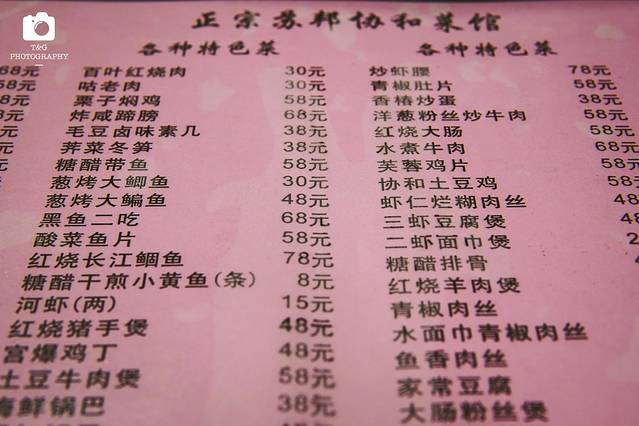 T&G
PHOTOGRAPHY
正宗苏邦协和菜馆
各种特色菜
各种特色菜
68元 百叶红烧肉 30元 炒虾腰 78元
58元 咕老肉 30元 青椒肚片 58元
8元 栗子焖鸡 58元 香椿炒蛋 38元
8元 炸咸蹄膀 68元 洋葱粉丝炒牛肉 58元
元 毛豆卤味素几 38元 红烧大肠 58元
元 荠菜冬笋 38元 水煮牛肉 68元
元 糖醋带鱼 58元 芙蓉鸡片 58元
葱烤大鲫鱼 30元 协和土豆鸡 58
葱烤大鳊鱼 48元 虾仁烂糊肉丝 48
黑鱼二吃 68元 三虾豆腐煲 48
酸菜鱼片 58元 二虾面巾煲 2
红烧长江鮰鱼 78元 糖醋排骨
糖醋干煎小黄鱼(条) 8元 红烧羊肉煲
河虾(两) 15元 青椒肉丝
红烧猪手煲 48元 水面巾青椒肉丝
宫爆鸡丁 48元 鱼香肉丝
土豆牛肉煲 58元 家常豆腐
海鲜锅巴 38元 大肠粉丝煲
48元